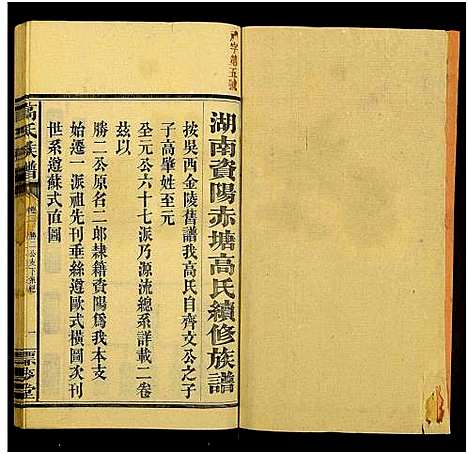 湖南資陽赤塘高氏續修族譜
按吳西金陵舊譜我高氏自齊文公之子
子高肇姓至元
至元公六十七派乃源流總系詳載二卷
茲以
勝二公原名二郎隸籍資陽為我本支
始遷一派祖先刊垂絲遵歐式橫圖次刊
世系遵蘇式直圖
高氏族譜
一
字第五號